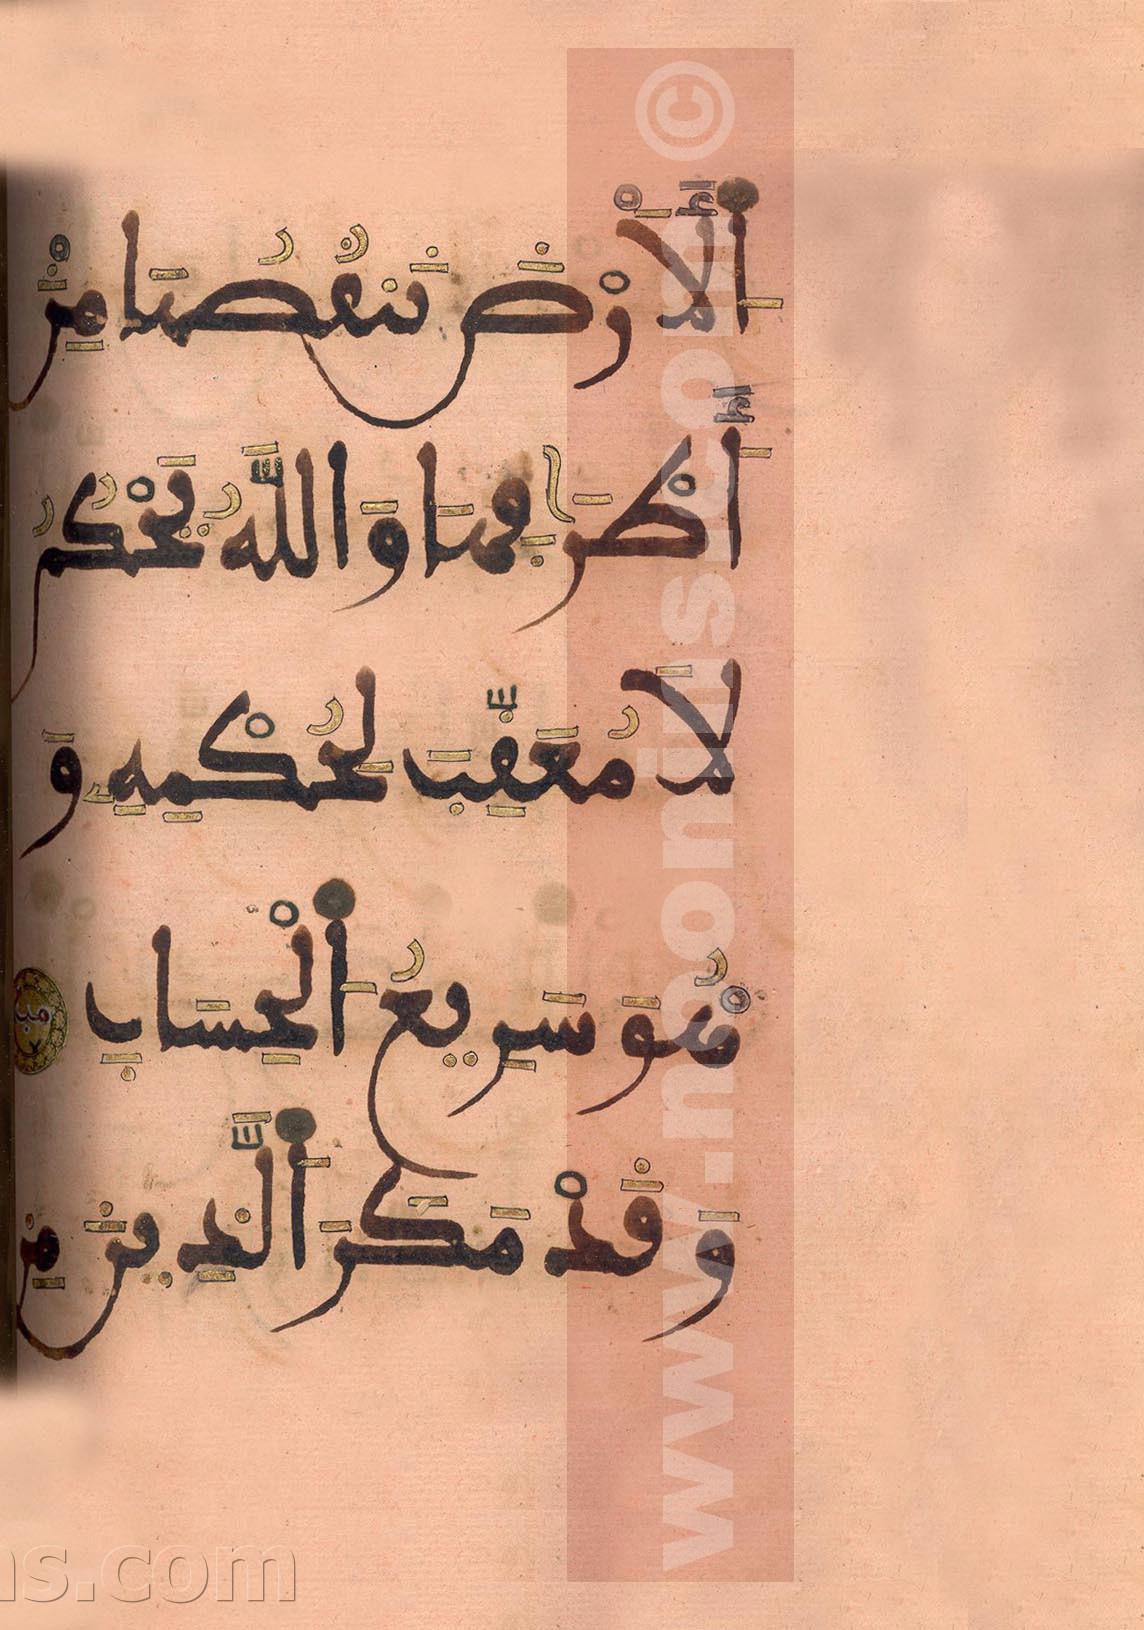 اَلْأَرْضَ نَنقُصُهَا مِنْ
أَطْرَافِهَا وَاللَّهُ يَحْكُمُ
لَا مُعَقِّبَ لِحُكْمِهِ وَ
هُوَ سَرِيعُ اُلْحِسَابِ
وَقَدْ مَكَرَ اَلَّذِينَ مِن
www.moonüs.com ©
ns.com